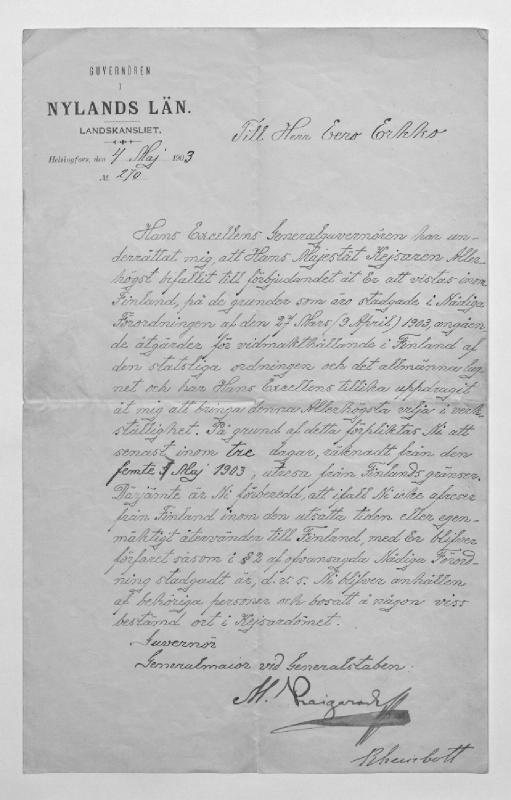 GUVERNÖREN
I
NYLANDS LÄN.
LANDSKANSLIET.
Helsingfors, den 4 Maj 1903
№ 270
Till Herr Eero Erkko
Hans Excellens Generalguvernören har un-
derrättat mig, att Hans Majestät Kejsaren Aller-
högst bifallit till förbjudandet åt Er att vistas inom
Finland, på de grunder som äro stadgade i Nådiga
Förordningen af den 27 Mars (9 April) 1903, angåen-
de åtgärder för vidmakthållande i Finland af
den statsliga ordningen och det allmänna lug-
net och har Hans Excellens tillika uppdragit
åt mig att bringa denna Allerhögsta vilja i verk-
ställighet. På grund af detta förpliktas Ni att
senast inom tre dagar, räknadt från den
femte 5 Maj 1903, utresa från Finlands gränser.
Därjämte är Ni förberedd, att ifall Ni icke afreser
från Finland inom den utsatta tiden eller egen-
mäktigt återvänder till Finland, med Er blifver
förfaret såsom i § 2 af ofvansagda Nådiga Förord-
ning stadgadt är, d. v. s. Ni blifver anhållen
af behöriga personer och bosatt å någon viss
bestämd ort i Kejsardömet.
Guvernör
Generalmaior vid Generalstaben:
M. Kaigorodoff